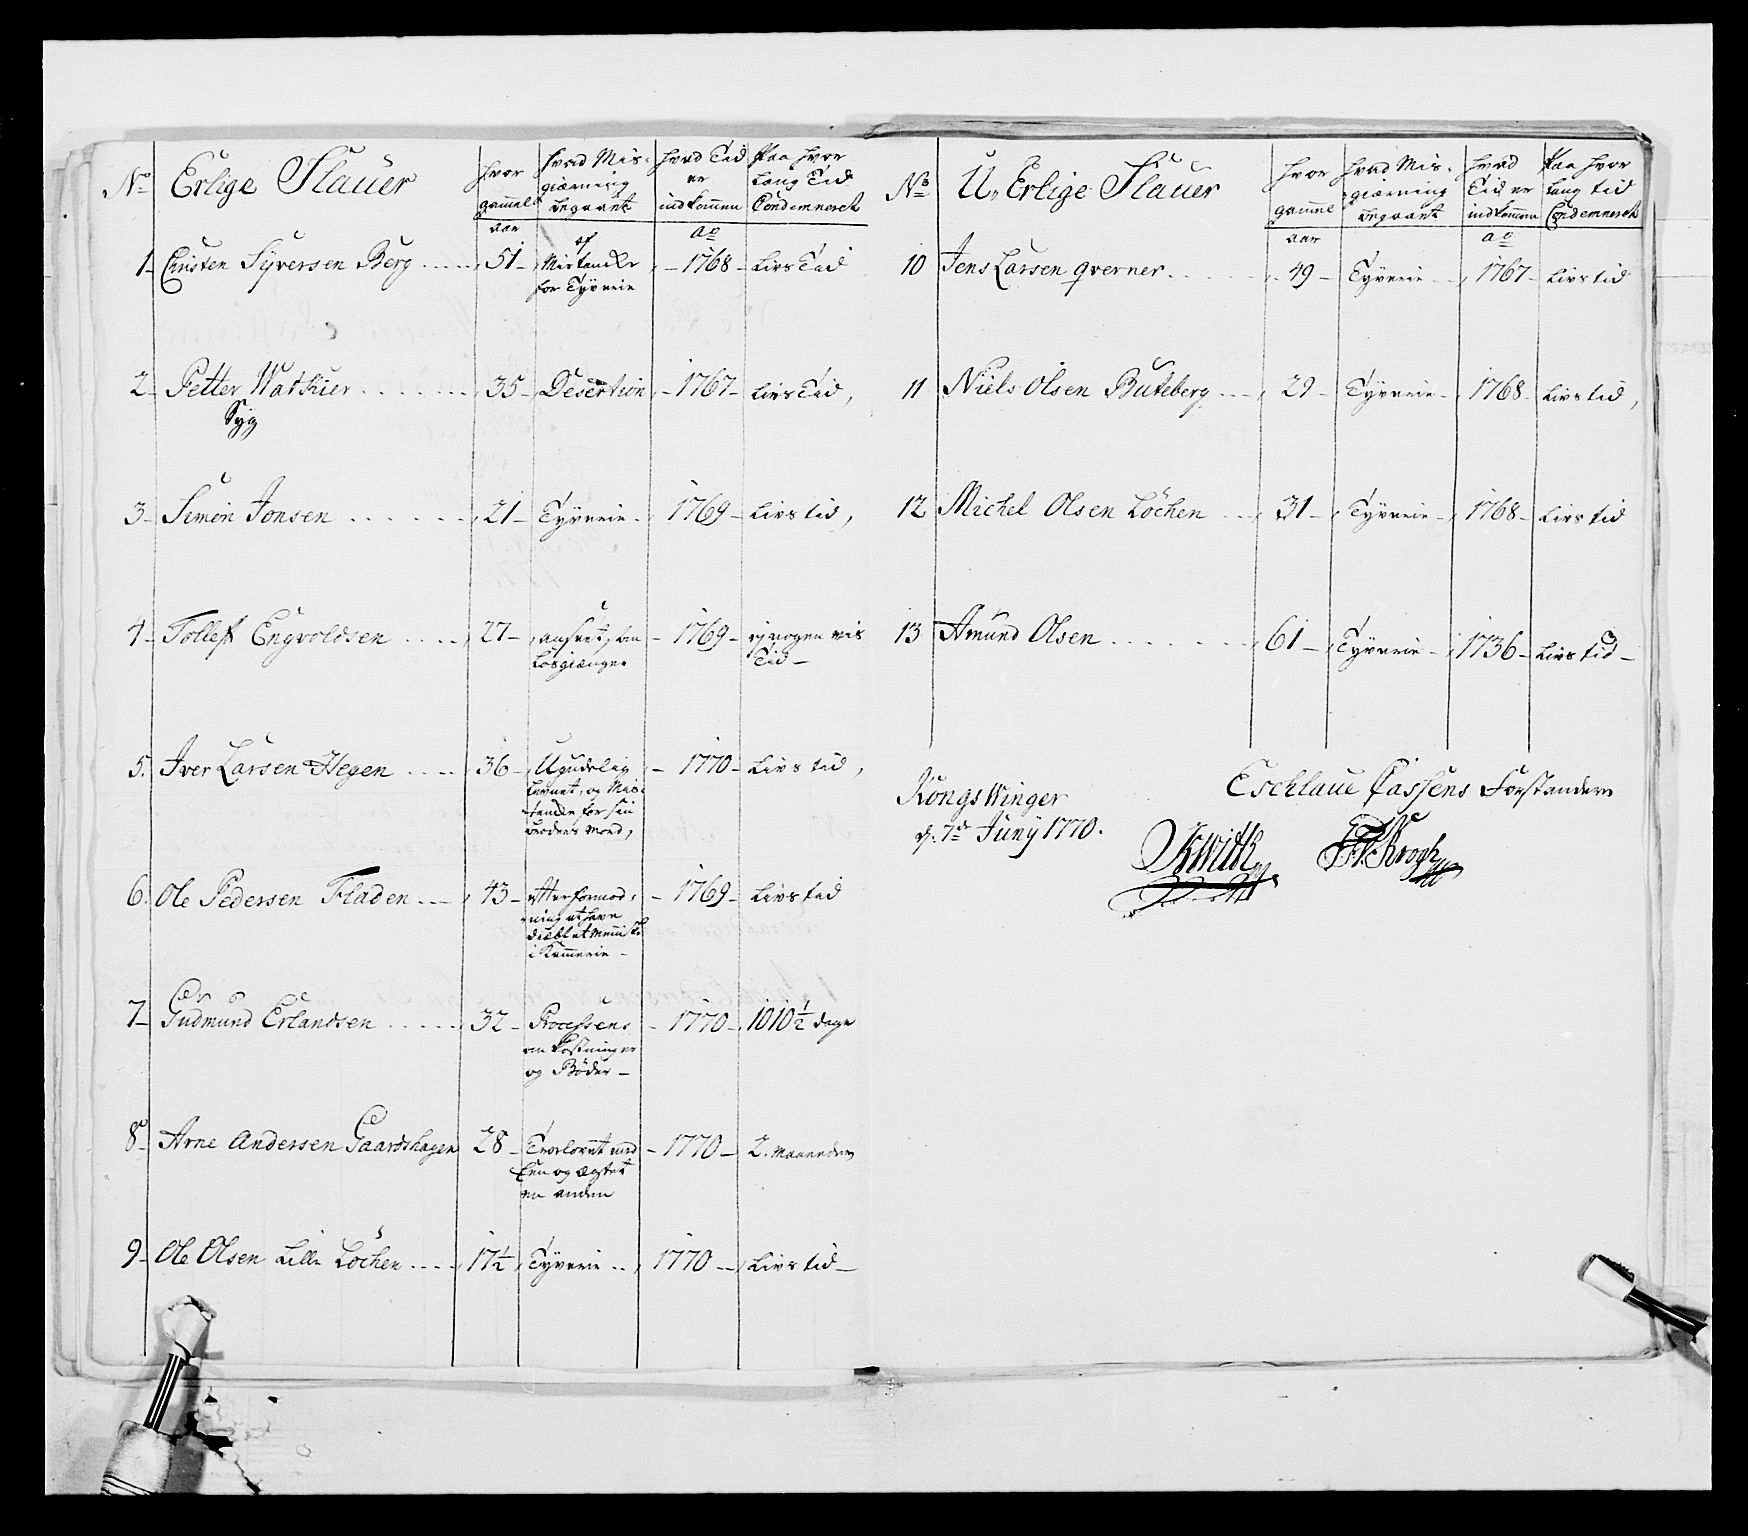 No Erlige Slauer hvor gammel hvad Mis- giærning begaaet hvad Tid er indkommen Paa hvor lang Tid Condemneret
aar ao
1 Christen Syversen Berg 51 af Mistancke for Tyverie 1768 Livs Tid
2 Petter Watkier 35 Desertion 1767 Livs Tid,
Syg
3 Simon Jonsen 21 Tyverie 1769 Livs tid,
4 Tollef Engvoldsen 27 anseet, som Løsgiænger 1769 ej nogen vis Tid
5. Iver Larsen Hegen 36 Ugudelig Levnet, og Mis- tancke for sin broders Mord, 1770 Livs tid,
6. Ole Pedersen Fladen 43 1769 Livs tid
7 Gudmund Erlandsen 32 Processens omkostninger og Bøder 1770 1010½ dage
8 Arne Andersen Gaardshagen 28 Trolovet med Een og ægtet en anden 1770 2. Maaneder
9 Ole Olsen Lille Løchen 17½ Tyverie 1770 Livs tid
No U-Erlige Slauer hvor gammel hvad Mis- giærning begaaet hvad Tid er indkommen Paa hvor lang tid Condemneret
aar ao
10 Jens Larsen Qverner 49 Tyverie 1767 Livs tid
11 Niels Olsen Buteberg 29 Tyverie 1768 Livs tid,
12 Michel Olsen Løchen 31 Tyverie 1768 Livs tid
13 Amund Olsen 61 Tyverie 1736 Livs tid
Kongs Winger
d. 7de Juny 1770.
Esclaue Cassens Forstandere
FV: Krogh